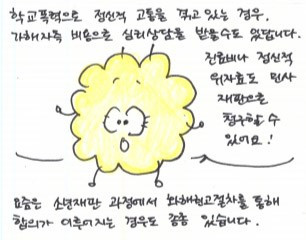 학교폭력으로 정신적 고통을 겪고 있는 경우,
가해자측 비용으로 심리상담을 받을수도 있답니다.
진료비나 정신적
위자료도 민사
재판으로
청구할 수
있어요!
요즘은 소년재판 과정에서 화해권고절차를 통해
합의가 이루어지는 경우도 종종 있습니다.